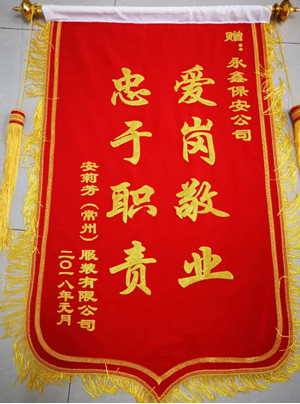 赠：永鑫保安公司
爱岗敬业
忠于职责
安莉芳（常州）服装有限公司
二〇一八年元月